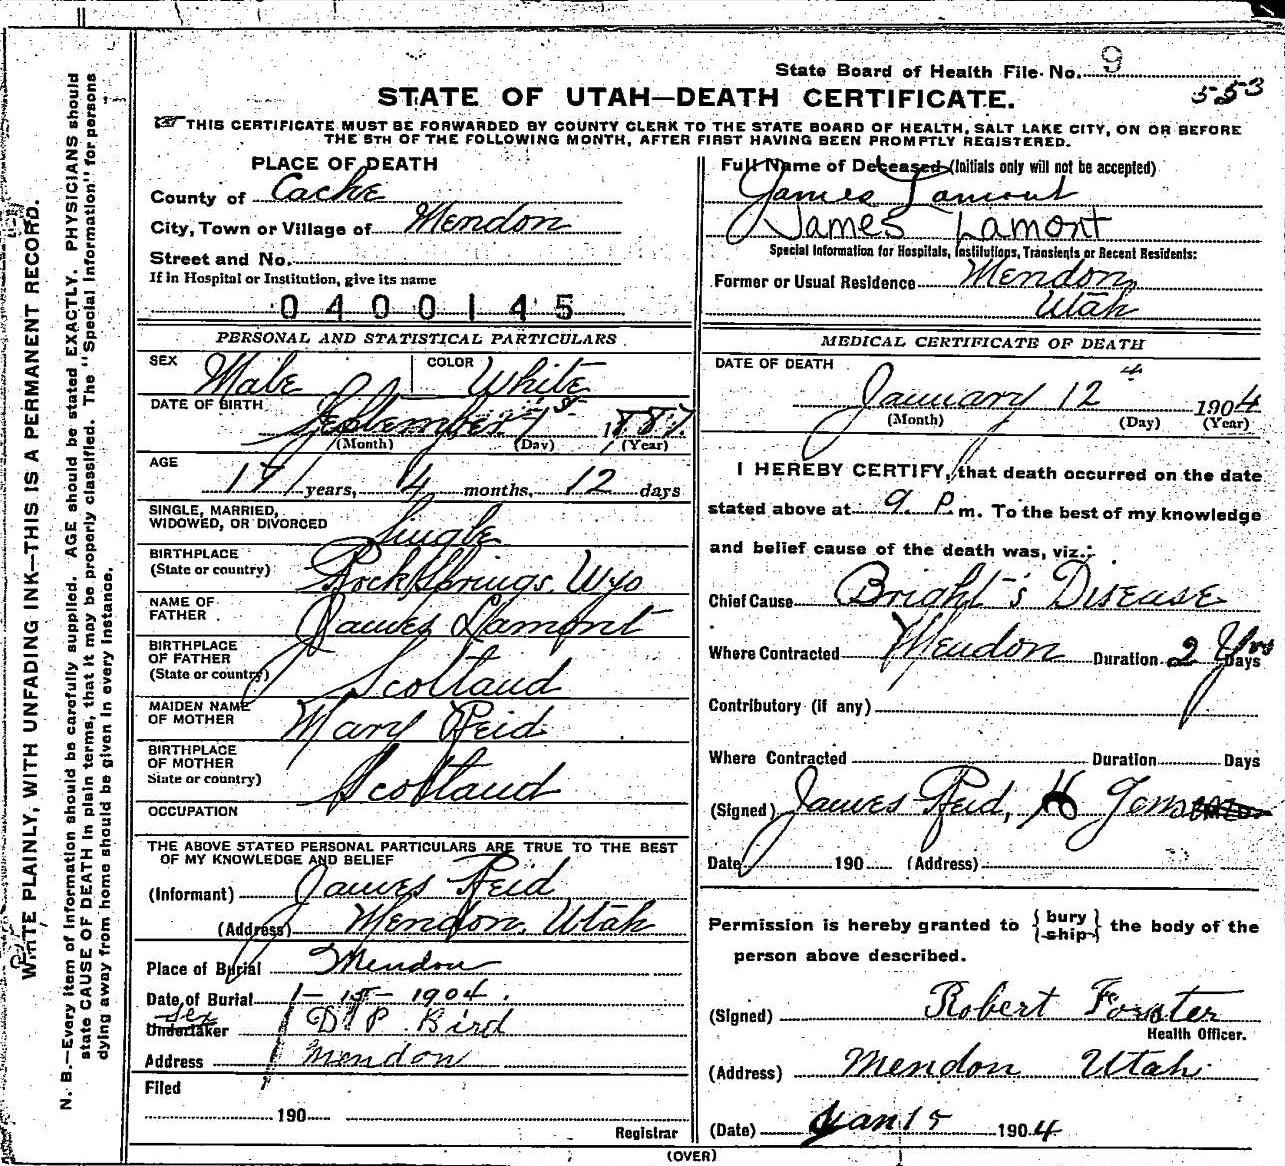 State Board of Health File No. 9
553
STATE OF UTAH—DEATH CERTIFICATE.
THIS CERTIFICATE MUST BE FORWARDED BY COUNTY CLERK TO THE STATE BOARD OF HEALTH, SALT LAKE CITY, ON OR BEFORE
THE 5TH OF THE FOLLOWING MONTH, AFTER FIRST HAVING BEEN PROMPTLY REGISTERED.
PLACE OF DEATH
County of Cache
City, Town or Village of Mendon
Street and No.
If in Hospital or Institution, give its name
0400145
PERSONAL AND STATISTICAL PARTICULARS
SEX Male COLOR White
DATE OF BIRTH September 1887
(Month) (Day) (Year)
AGE
17 years, 4 months, 12 days
SINGLE, MARRIED,
WIDOWED, OR DIVORCED Single
BIRTHPLACE
(State or country) Rock Springs, Wyo
NAME OF
FATHER James Lamont
BIRTHPLACE
OF FATHER
(State or country) Scotland
MAIDEN NAME
OF MOTHER Mary Reid
BIRTHPLACE
OF MOTHER
State or country) Scotland
OCCUPATION
THE ABOVE STATED PERSONAL PARTICULARS ARE TRUE TO THE BEST
OF MY KNOWLEDGE AND BELIEF
(Informant) James Reid
(Address) Mendon, Utah
Place of Burial Mendon
Date of Burial 1-15-1904.
Sex
Undertaker D P Bird
Address Mendon
Filed
190
Registrar
Full Name of Deceased (Initials only will not be accepted)
James Lamont
James Lamont
Special Information for Hospitals, Institutions, Transients or Recent Residents:
Former or Usual Residence Mendon,
Utah
MEDICAL CERTIFICATE OF DEATH
DATE OF DEATH
January 12 1904
(Month) (Day) (Year)
I HEREBY CERTIFY, that death occurred on the date
stated above at 9 P. m. To the best of my knowledge
and belief cause of the death was, viz.:
Chief Cause Bright's Disease
Where Contracted Mendon Duration 2 Yrs Days
Contributory (if any)
Where Contracted Duration Days
(Signed) James Reid,
Date 190 (Address)
Permission is hereby granted to {bury ship} the body of the
person above described.
(Signed) Robert Forster
Health Officer.
(Address) Mendon Utah
(Date) Jan 15 1904
(OVER)
WRITE PLAINLY, WITH UNFADING INK—THIS IS A PERMANENT RECORD.
N. B.—Every item of information should be carefully supplied. AGE should be stated EXACTLY. PHYSICIANS should
state CAUSE OF DEATH in plain terms, that it may be properly classified. The "Special Information" for persons
dying away from home should be given in every instance.